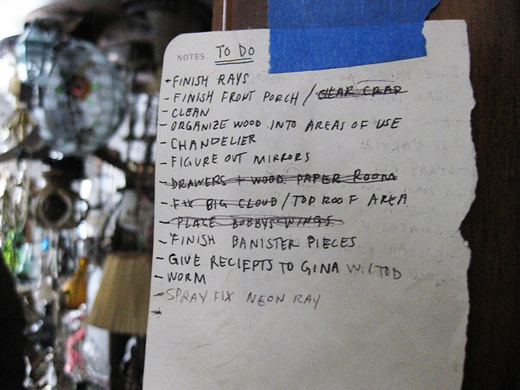 NOTES TO DO
- FINISH RAYS
- FINISH FRONT PORCH / CLEAR CRAP
- CLEAN
- ORGANIZE WOOD INTO AREAS OF USE
- CHANDELIER
- FIGURE OUT MIRRORS
- DRAWERS + WOOD PAPER ROOM
- FIX BIG CLOUD / TOP ROOF AREA
- PLACE BOBBYS WINGS
- FINISH BANISTER PIECES
- GIVE RECIEPTS TO GINA
- WORM
- SPRAY FIX NEON RAY
-